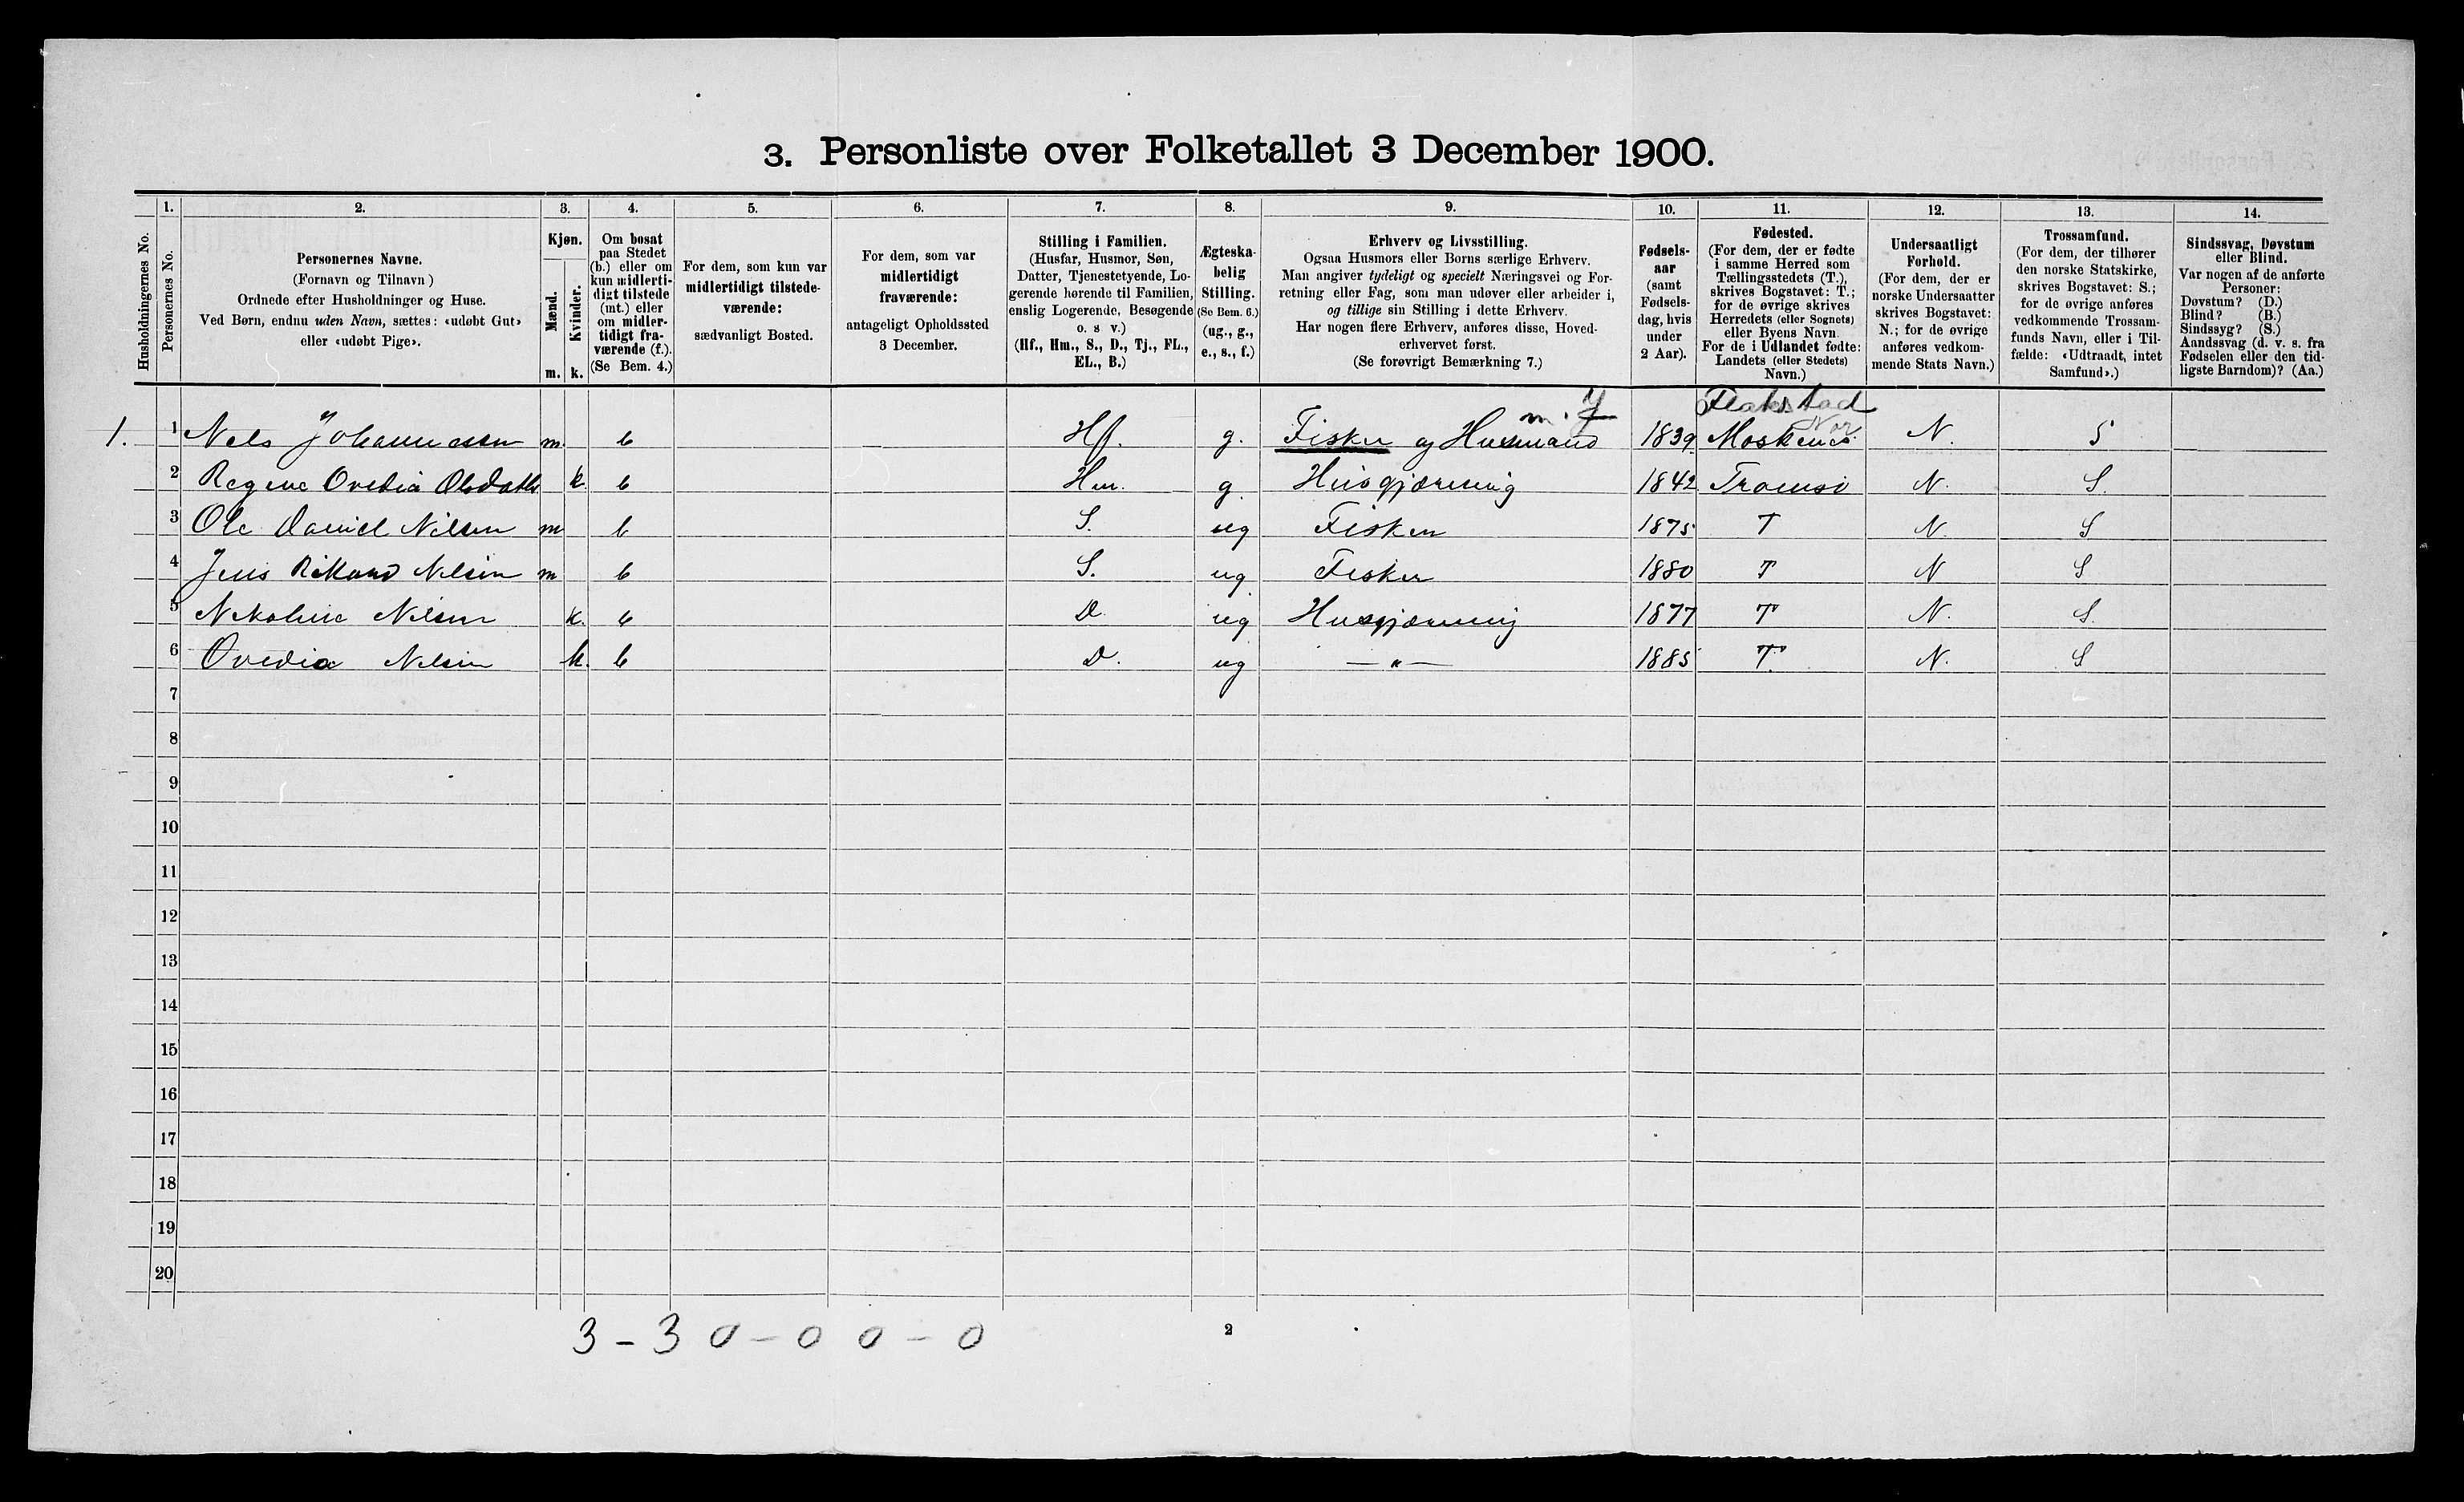 3. Personliste over Folketallet 3 December 1900.
1. 2. 3. 4. 5. 6. 7. 8. 9. 10. 11. 12. 13. 14.
Husholdningernes No.
Personernes No.
Personernes Navne.
(Fornavn og Tilnavn)
Ordnede efter Husholdninger og Huse.
Ved Børn, endnu uden Navn, sættes: «udøbt Gut»
eller «udøbt Pige».
Kjøn.
Mænd.
Kvinder.
m. k.
Om bosat
paa Stedet
(b.) eller om
kun midlerti-
digt tilstede
(mt.) eller
om midler-
tidigt fra-
værende (f.).
(Se Bem. 4.)
For dem, som kun var
midlertidigt tilstede-
værende:
sædvanligt Bosted.
For dem, som var
midlertidigt
fraværende:
antageligt Opholdssted
3 December.
Stilling i Familien.
(Husfar, Husmor, Søn,
Datter, Tjenestetyende, Lo-
gerende hørende til Familien,
enslig Logerende, Besøgende
o. s v.)
(Hf., Hm., S., D., Tj., FL.,
EL., B.)
Ægteska-
belig
Stilling.
(Se Bem. 6.)
(ug., g.,
e., s., f.)
Erhverv og Livsstilling.
Ogsaa Husmors eller Borns særlige Erhverv.
Man angiver tydeligt og specielt Næringsvei og For-
retning eller Fag, som man udøver eller arbeider i,
og tillige sin Stilling i dette Erhverv.
Har nogen flere Erhverv, anføres disse, Hoved-
erhvervet først.
(Se forøvrigt Bemærkning 7.)
Fødsels-
aar
(samt
Fødsels-
dag, hvis
under
2 Aar).
Fødested.
(For dem, der er fødte
i samme Herred som
Tællingsstedets (T.),
skrives Bogstavet: T.;
for de øvrige skrives
Herredets (eller Sognets)
eller Byens Navn.
For de i Udlandet fødte:
Landets (eller Stedets)
Navn.)
Undersaatligt
Forhold.
(For dem, der er
norske Undersaatter
skrives Bogstavet:
N.; for de øvrige
anføres vedkom-
mende Stats Navn.)
Trossamfund.
(For dem, der tilhører
den norske Statskirke,
skrives Bogstavet: S.;
for de øvrige anføres
vedkommende Trossam-
funds Navn, eller i Til-
fælde: «Udtraadt, intet
Samfund».)
Sindssvag, Døvstum
eller Blind.
Var nogen af de anførte
Personer:
Døvstum? (D.)
Blind? (B.)
Sindssyg? (S.)
Aandssvag (d. v. s. fra
Fødselen eller den tid-
ligste Barndom)? (Aa.)
m. Flakstad
1. 1 Nels Johannessen m. b Hf. g. Fisker og Husmand 1839 Moskenes Nor N. S
2 Regine Ovedia Olsdatter k. b Hm. g. Husgjærning 1842 Tromsø N. S.
3 Ole Daniel Nilsen m b S. ug Fisker 1875 T N. S
4 Jens Rikard Nelsen m b S. ug Fisker 1880 T N S
5 Nikoline Nilsen k. b D. ug Husgjærning 1877 T N. S.
6 Ovedia Nelsen k. b D. ug — " — 1885 T N. S
7
8
9
10
11
12
13
14
15
16
17
18
19
20
3 - 3 0 - 0 0 - 0
2